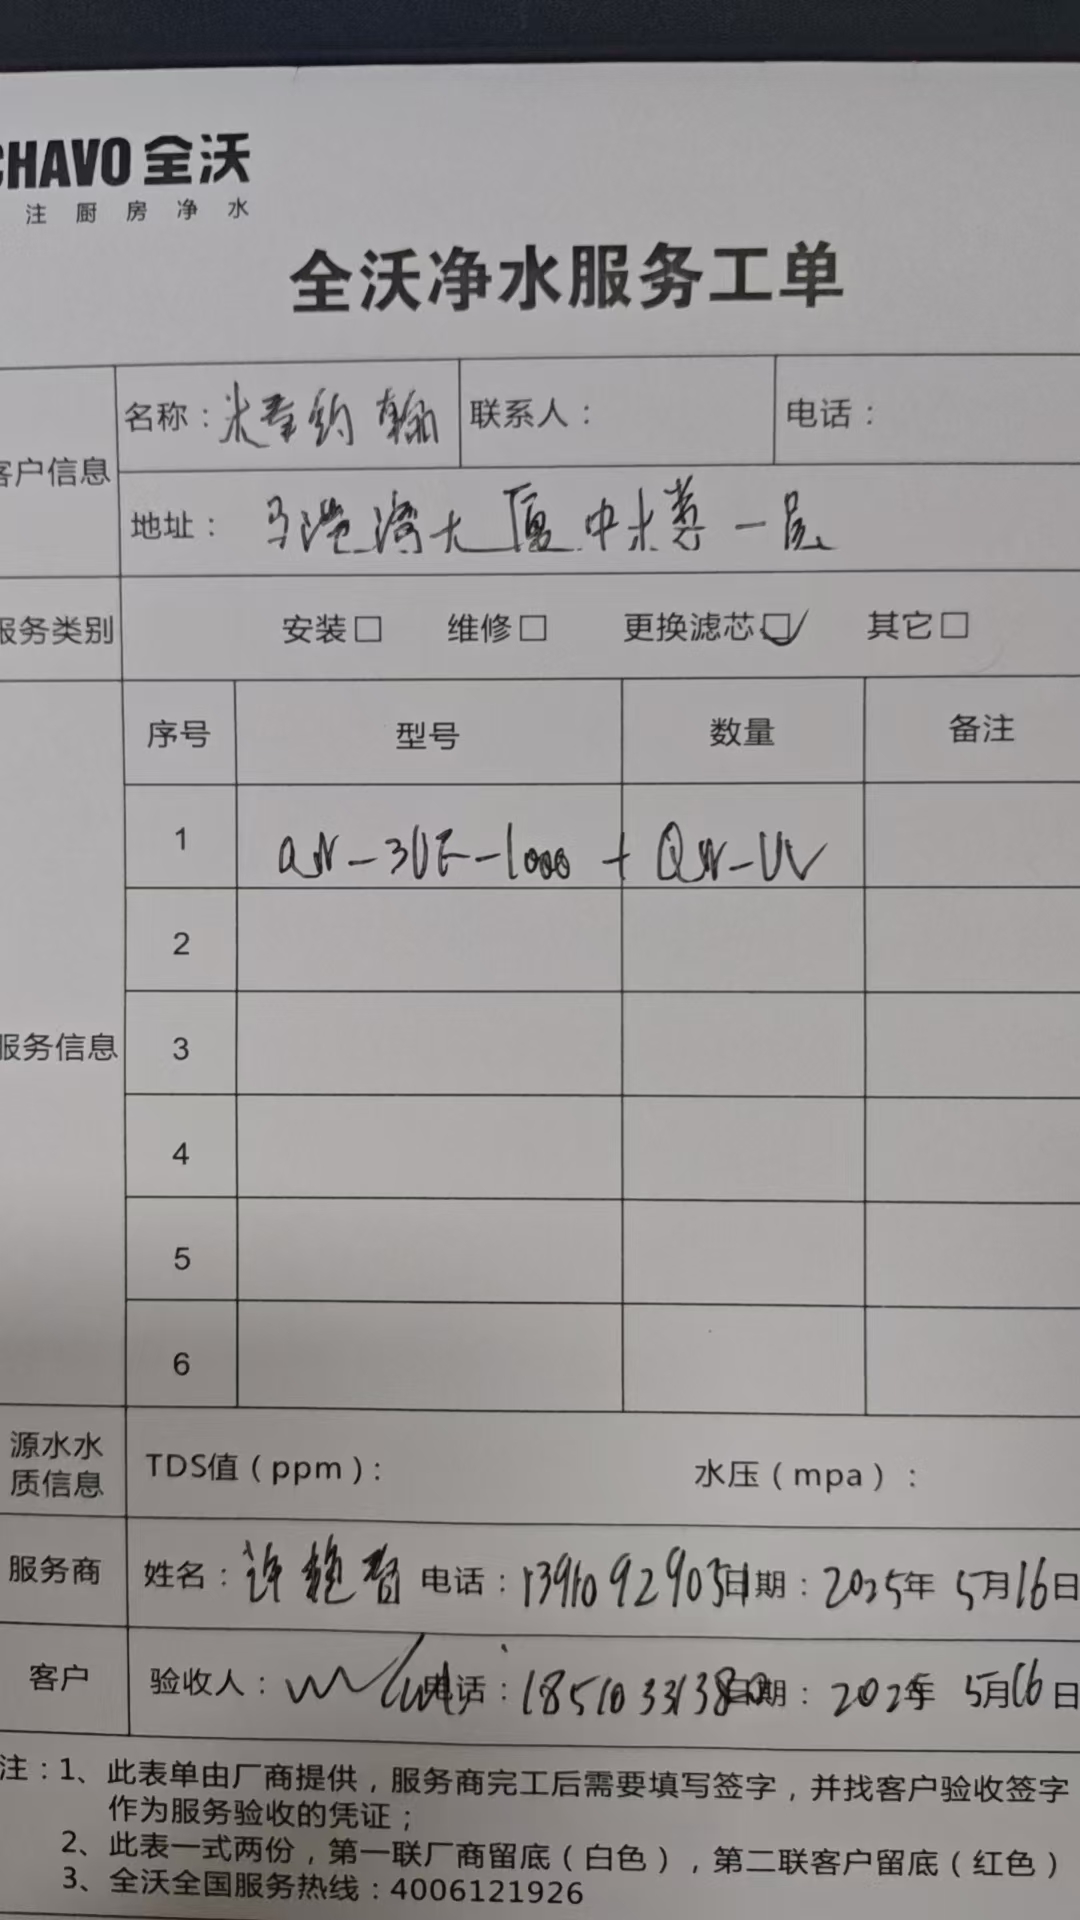 CHAVO 全沃
注厨房净水
全沃净水服务工单
客户信息
名称：米奎约翰 联系人： 电话：
地址： 马港湾大厦中 一层
服务类别 安装□ 维修□ 更换滤芯☑ 其它□
服务信息
序号 型号 数量 备注
1 QW-3UF-1000 + QW-UV
2
3
4
5
6
源水水质信息 TDS值（ppm）： 水压（mpa）：
服务商 姓名：许艳哲 电话：13910929031 日期：2025年5月16日
客户 验收人： 电话：18510331380 日期：2025年5月16日
注：1、此表单由厂商提供，服务商完工后需要填写签字，并找客户验收签字
作为服务验收的凭证；
2、此表一式两份，第一联厂商留底（白色），第二联客户留底（红色）
3、全沃全国服务热线：4006121926